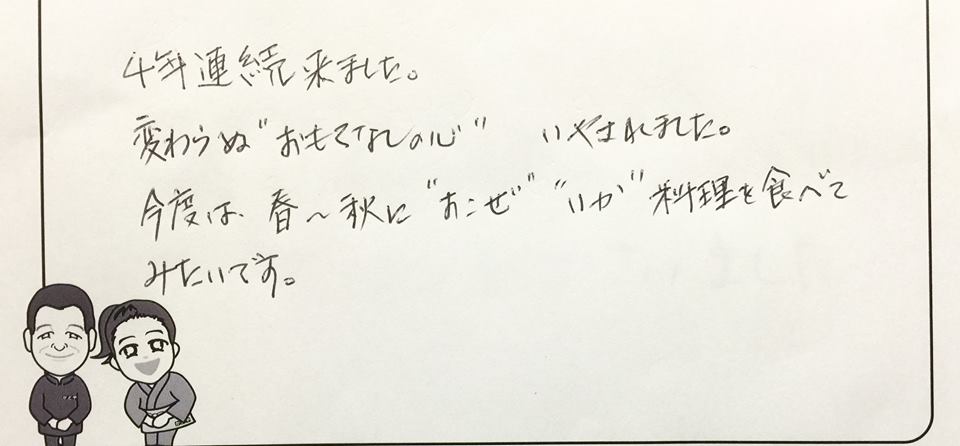 4年連続来ました。
変わらぬ"おもてなしの心" いやされました。
今度は、春~秋に"おこぜ" "いか"料理を食べて
みたいです。